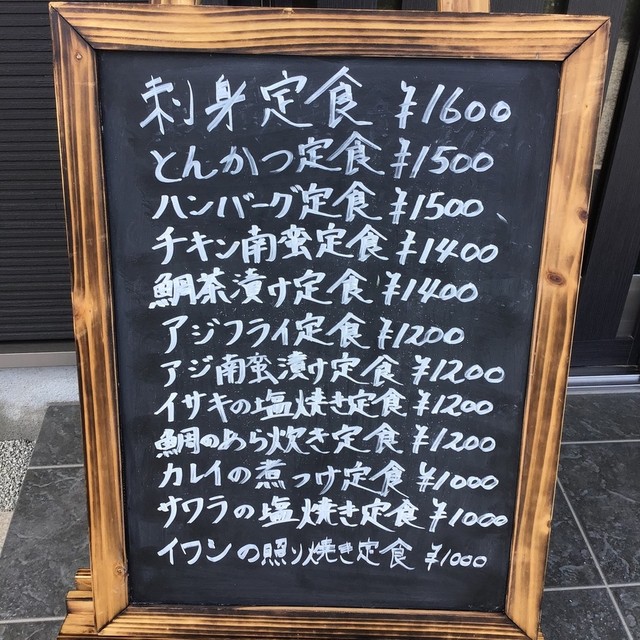 刺身定食 ¥1600
とんかつ定食 ¥1500
ハンバーグ定食 ¥1500
チキン南蛮定食 ¥1400
鯛茶漬け定食 ¥1400
アジフライ定食 ¥1200
アジ南蛮漬け定食 ¥1200
イサキの塩焼き定食 ¥1200
鯛のあら炊き定食 ¥1200
カレイの煮つけ定食 ¥1000
サワラの塩焼き定食 ¥1000
イワシの照り焼き定食 ¥1000